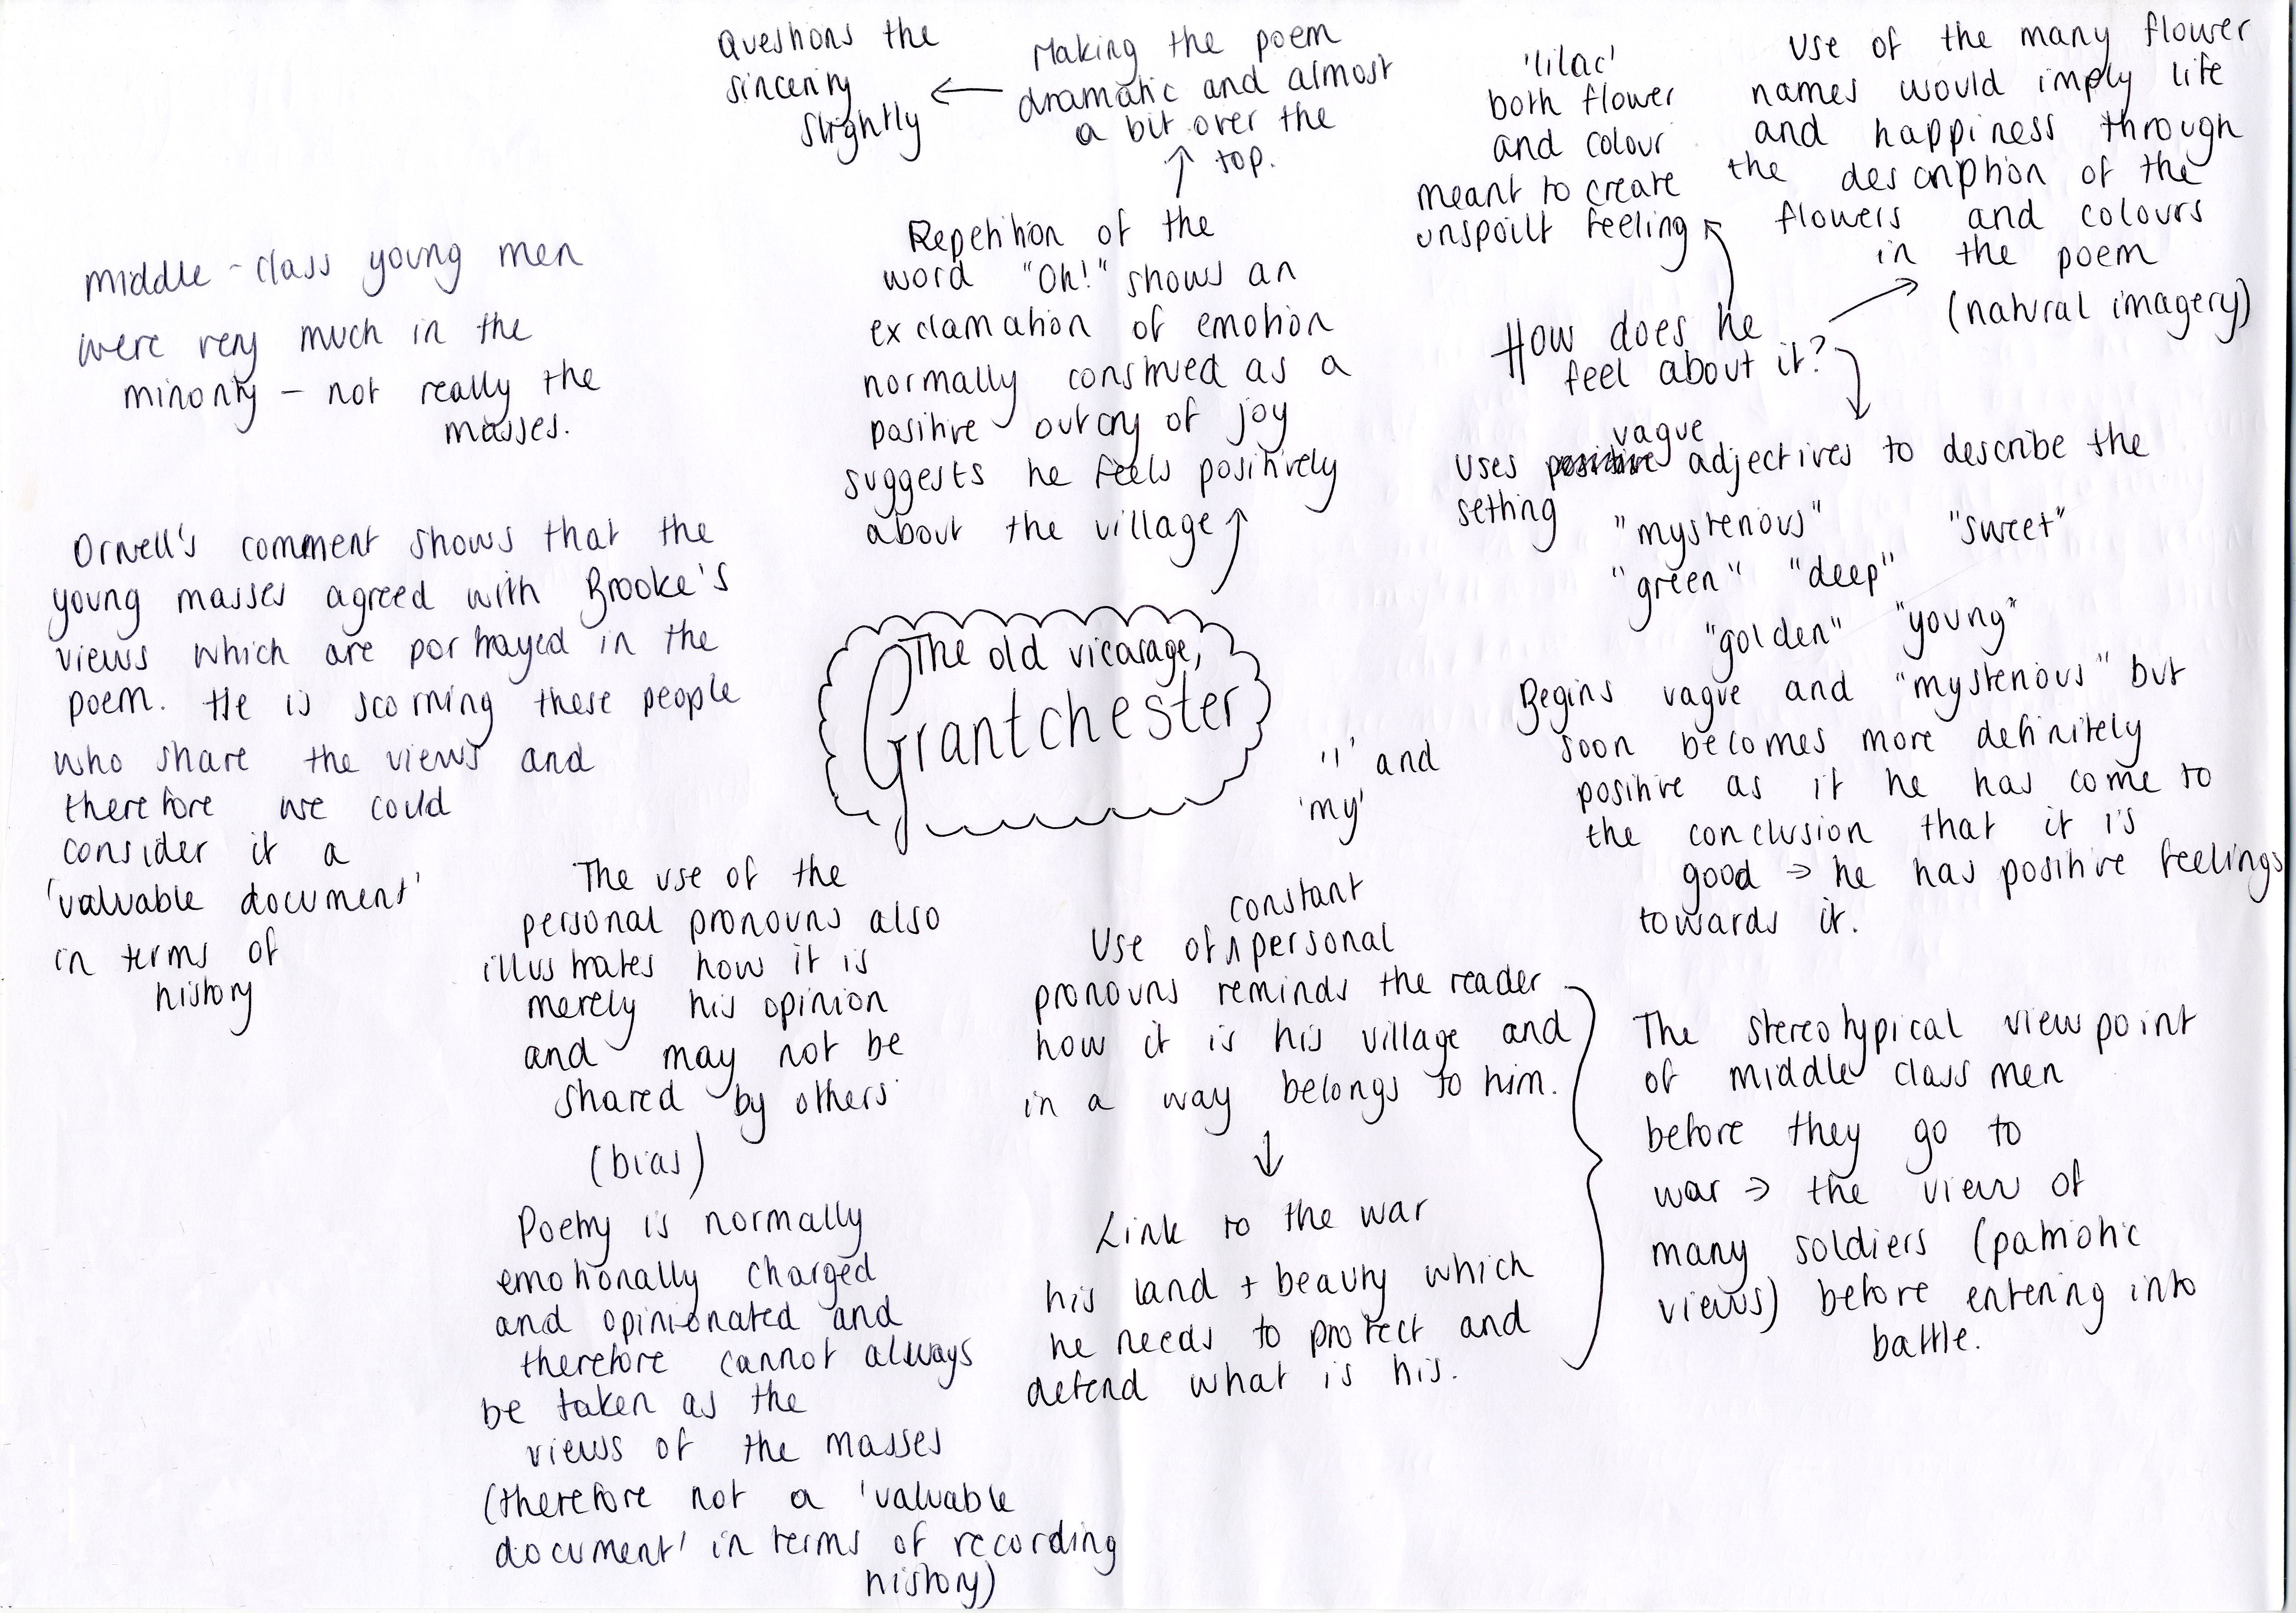 Questions the
sincerity
slightly
Making the poem
dramatic and almost
a bit over the
top.
Repetition of the
word "Oh!" shows an
exclamation of emotion
normally construed as a
positive outcry of joy
suggests he feels positively
about the village
'lilac'
both flower
and colour
meant to create
unspoilt feeling
Use of the many flower
names would imply life
and happiness through
the description of the
flowers and colours
in the poem
(natural imagery)
How does he
feel about it?
vague
uses positive adjectives to describe the
setting
"mysterious" "sweet"
"green" "deep"
"golden" "young"
Begins vague and "mysterious" but
soon becomes more definitely
positive as if he has come to
the conclusion that it is
good → he has positive feelings
towards it.
middle-class young men
were very much in the
minority - not really the
masses.
Orwell's comment shows that the
young masses agreed with Brooke's
views which are portrayed in the
poem. He is scorning these people
who share the views and
therefore we could
consider it a
'valuable document'
in terms of
history
The old vicarage,
Grantchester
'I' and
'my'
The use of the
personal pronouns also
illustrates how it is
merely his opinion
and may not be
shared by others
(bias)
Poetry is normally
emotionally charged
and opinionated and
therefore cannot always
be taken as the
views of the masses
(therefore not a 'valuable
document' in terms of recording
history)
constant
Use of ∧ personal
pronouns reminds the reader
how it is his village and
in a way belongs to him.
Link to the war
his land + beauty which
he needs to protect and
defend what is his.
The stereotypical viewpoint
of middle class men
before they go to
war → the view of
many soldiers (patriotic
views) before entering into
battle.